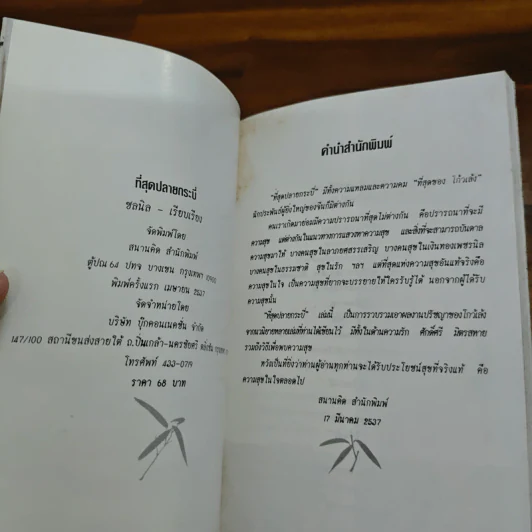 ที่สุดปลายกระบี่
ชลนิล - เรียบเรียง
จัดพิมพ์โดย
สนานคิด สำนักพิมพ์
ตู้ปณ 64 ปทจ บางเขน กรุงเทพฯ
พิมพ์ครั้งแรก เมษายน 2537
จัดจำหน่ายโดย
บริษัท บุ๊คคอนเนคชั่น จำกัด
147/100 สถานีขนส่งสายใต้ ถ.ปิ่นเกล้า-นครชัยศรี
โทรศัพท์ 433-0719
ราคา 68 บาท
คำนำสำนักพิมพ์
"ที่สุดปลายกระบี่" มีทั้งความแหลมและความคม "ที่สุดของ โก้วเล้ง"
นักประพันธ์ผู้ยิ่งใหญ่ของจีนก็มีต่างกัน
คนเราเกิดมาย่อมมีความปรารถนาที่สุดไม่ต่างกัน คือปรารถนาที่จะมี
ความสุข แต่ต่างกันในแนวทางการแสวงหาความสุข และสิ่งที่จะสามารถบันดาล
ความสุขมาให้ บางคนสุขในลาภยศสรรเสริญ บางคนสุขในเงินทองเพชรนิล
บางคนสุขในธรรมชาติ สุขในรัก ฯลฯ แต่ที่สุดแห่งความสุขอันแท้จริงคือ
ความสุขในใจ เป็นความสุขที่ยากจะบรรยายให้ใครรับรู้ได้ นอกจากผู้ได้รับ
ความสุขนั้น
"ที่สุดปลายกระบี่" เล่มนี้ เป็นการรวบรวมเอาผลงานปรัชญาของโก้วเล้ง
จากนวนิยายหลายเล่มที่ท่านได้เขียนไว้ มีทั้งในด้านความรัก ศักดิ์ศรี มิตรสหาย
รวมถึงวิธีเพื่อพบความสุข
หวังเป็นที่ยิ่งว่าท่านผู้อ่านทุกท่านจะได้รับประโยชน์สุขที่จริงแท้ คือ
ความสุขในใจตลอดไป
สนานคิด สำนักพิมพ์
17 มีนาคม 2537